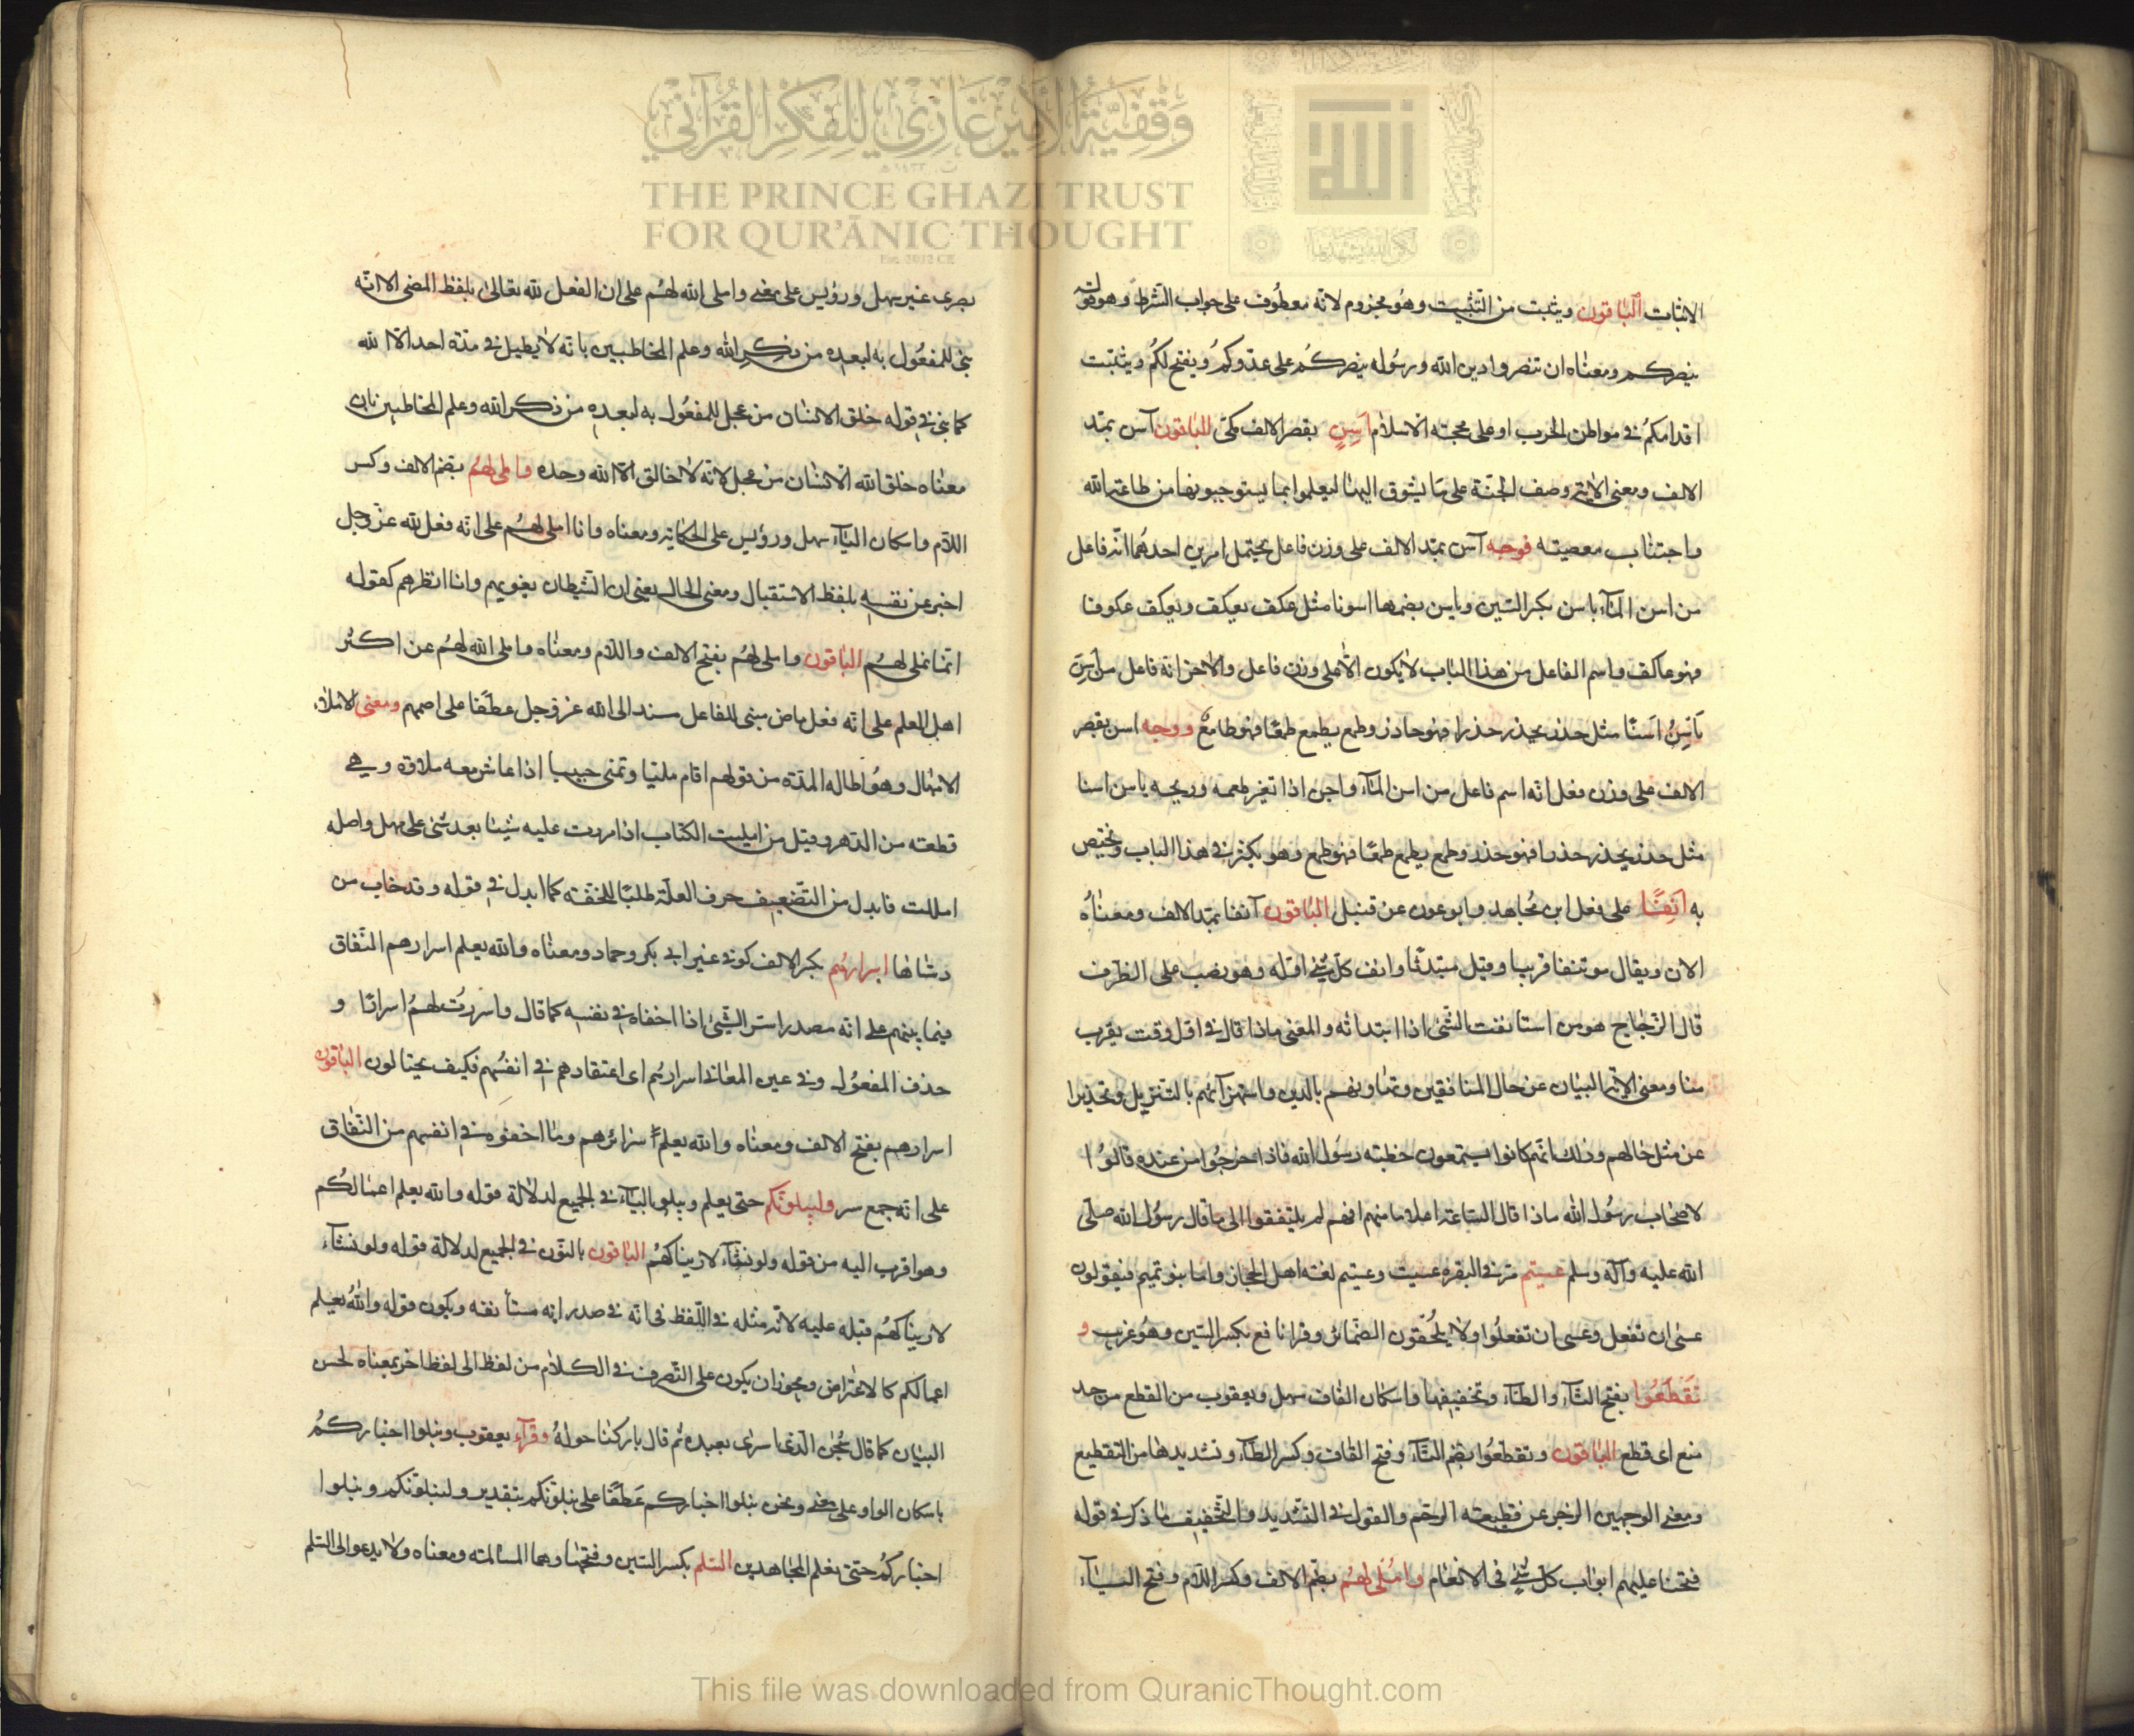 وقفية الأمير غازي للفكر القرآني
THE PRINCE GHAZI TRUST
FOR QUR'ĀNIC THOUGHT
الاثبات الباقون ويثبت من التثبيت وهو مجزوم لانه معطوف على جواب الشرط وهو قوله
ينصركم ومعناه ان تنصروا دين الله ورسوله ينصركم على عدوكم ويفتح لكم ويثبت
اقدامكم في مواطن الحرب او على محجة الاسلام اسن بقصر الالف مكى الباقون آسن بمد
الالف ومعنى الاية وصف الجنة على ما يشوق اليها ليعلموا بما يستوجبونها من طاعة الله
واجتناب معصيته فوجه آسن بمد الالف على وزن فاعل يحتمل امرين احدهما انه فاعل
من اسن الماء ياسن بكسر السين وياسن بضمها اسونا مثل عكف يعكف ويعكف عكوفا
فهو عاكف واسم الفاعل من هذا الباب لا يكون الا على وزن فاعل والاخر انه فاعل من اسن
ياسن اسنا مثل حذر يحذر حذرا فهو حاذر وطمع يطمع طمعا فهو طامع ووجه اسن بقصر
الالف على وزن فعل انه اسم فاعل من اسن الماء واجن اذا تغير طعمه وريحه ياسن اسنا
مثل حذر يحذر حذرا فهو حذر وطمع يطمع طمعا فهو طمع وهو يكثر في هذا الباب ويختص
به انفا على فعل ابن مجاهد وابو عون عن قنبل الباقون آنفا بمد الالف ومعناه
الان ويقال موتنفا قريبا وقيل مبتدئا وانف كل شئ اوله وهو نصب على الظرف
قال الزجاج هو من استانفت الشئ اذا ابتداته والمعنى ماذا قال في اول وقت يقرب
منا ومعنى الاية البيان عن حال المنافقين وتهاونهم بالدين واستهزآئهم بالتنزيل وتحذيرا
عن مثل حالهم وذلك انهم كانوا يستمعون خطبة رسول الله فاذا خرجوا من عنده قالوا
لاصحاب رسول الله ماذا قال الساعة اعلاما منهم انهم لم يلتفتوا الى ما قال رسول الله صلى
الله عليه وآله وسلم عسيتم مر في البقرة عسيت وعسيتم لغة اهل الحجاز واما بنو تميم فيقولون
عسى ان تفعل وعسى ان تفعلوا ولا يلحقون الضمائر وقرا نافع بكسر السين وهو غريب و
تقطعوا بفتح التاء والطاء وتخفيفها واسكان القاف سهل ويعقوب من القطع من حد
منع اى قطع الباقون وتقطعوا بضم التاء وفتح القاف وكسر الطاء وتشديدها من التقطيع
ومعنى الوجهين الزجر عن قطيعة الرحم والقول في التشديد والتخفيف ما ذكر في قوله
فتحنا عليهم ابواب كل شئ في الانعام واملى لهم بضم الالف وكسر اللام وفتح الياء
بصرى غير سهل ورويس على معنى واملى الله لهم على ان الفعل لله تعالى بلفظ المضى الا انه
بنى للمفعول به لبعده من ذكر الله وعلم المخاطبين بانه لا يطيل في مدة احد الا الله
كما بنى في قوله خلق الانسان من عجل للمفعول به لبعده من ذكر الله وعلم المخاطبين بان
معناه خلق الله الانسان من عجل لانه لا خالق الا الله وحده واملى لهم بضم الالف وكسر
اللام واسكان الياء سهل ورويس على الحكاية ومعناه وانا املى لهم على انه فعل لله عز وجل
اخبر عن نفسه بلفظ الاستقبال ومعنى الحال يعنى ان الشيطان يغويهم وانا انظرهم كقوله
انما نملى لهم الباقون واملى لهم بفتح الالف واللام ومعناه واملى الله لهم عن اكثر
اهل العلم على انه فعل ماض مبنى للفاعل مسند الى الله عز وجل عطفا على اصمهم ومعنى الاملاء
الامهال وهو اطالة المدة من قولهم اقام مليا وتملى حبيبا اذا عاش معه ملاوة وهي
قطعة من الدهر وقيل من امليت الكتاب اذا امررت عليه شيئا بعد شئ على مهل واصله
امللت فابدل من التضعيف حرف العلة طلبا للخفة كما ابدل في قوله وقد خاب من
دساها اسرارهم بكسر الالف كوفي غير ابي بكر وحماد ومعناه والله يعلم اسرارهم النفاق
فيما بينهم على انه مصدر اسر الشئ اذا اخفاه في نفسه كما قال واسررت لهم اسرارا و
حذف المفعول وفي عين المعاني اسرارهم اى اعتقادهم في انفسهم فكيف يحتالون الباقون
اسرارهم بفتح الالف ومعناه والله يعلم سرائرهم وما اخفوه في انفسهم من النفاق
على انه جمع سر وليبلونكم حتى يعلم ويبلو بالياء في الجميع لدلالة قوله والله يعلم اعمالكم
وهو اقرب اليه من قوله ولو نشاء لاريناكهم الباقون بالنون في الجميع لدلالة قوله ولو نشاء
لاريناكهم قبله عليه لانه مثله في اللفظ في انه في صدر اية مستانفة ويكون قوله والله يعلم
اعمالكم كالاعتراض ويجوز ان يكون على التصرف في الكلام من لفظ الى لفظ اخر بمعناه لحسن
البيان كما قال سبحن الذى اسرى بعبده ثم قال باركنا حوله وقرآء يعقوب ونبلوا اخباركم
باسكان الواو على معنى ونحن نبلوا اخباركم عطفا على نبلونكم بتقدير ولنبلونكم ونبلوا
اخباركم حتى نعلم المجاهدين السلم بكسر السين وفتحها وهما المسالمة ومعناه ولا يدعوا الى السلم
This file was downloaded from QuranicThought.com